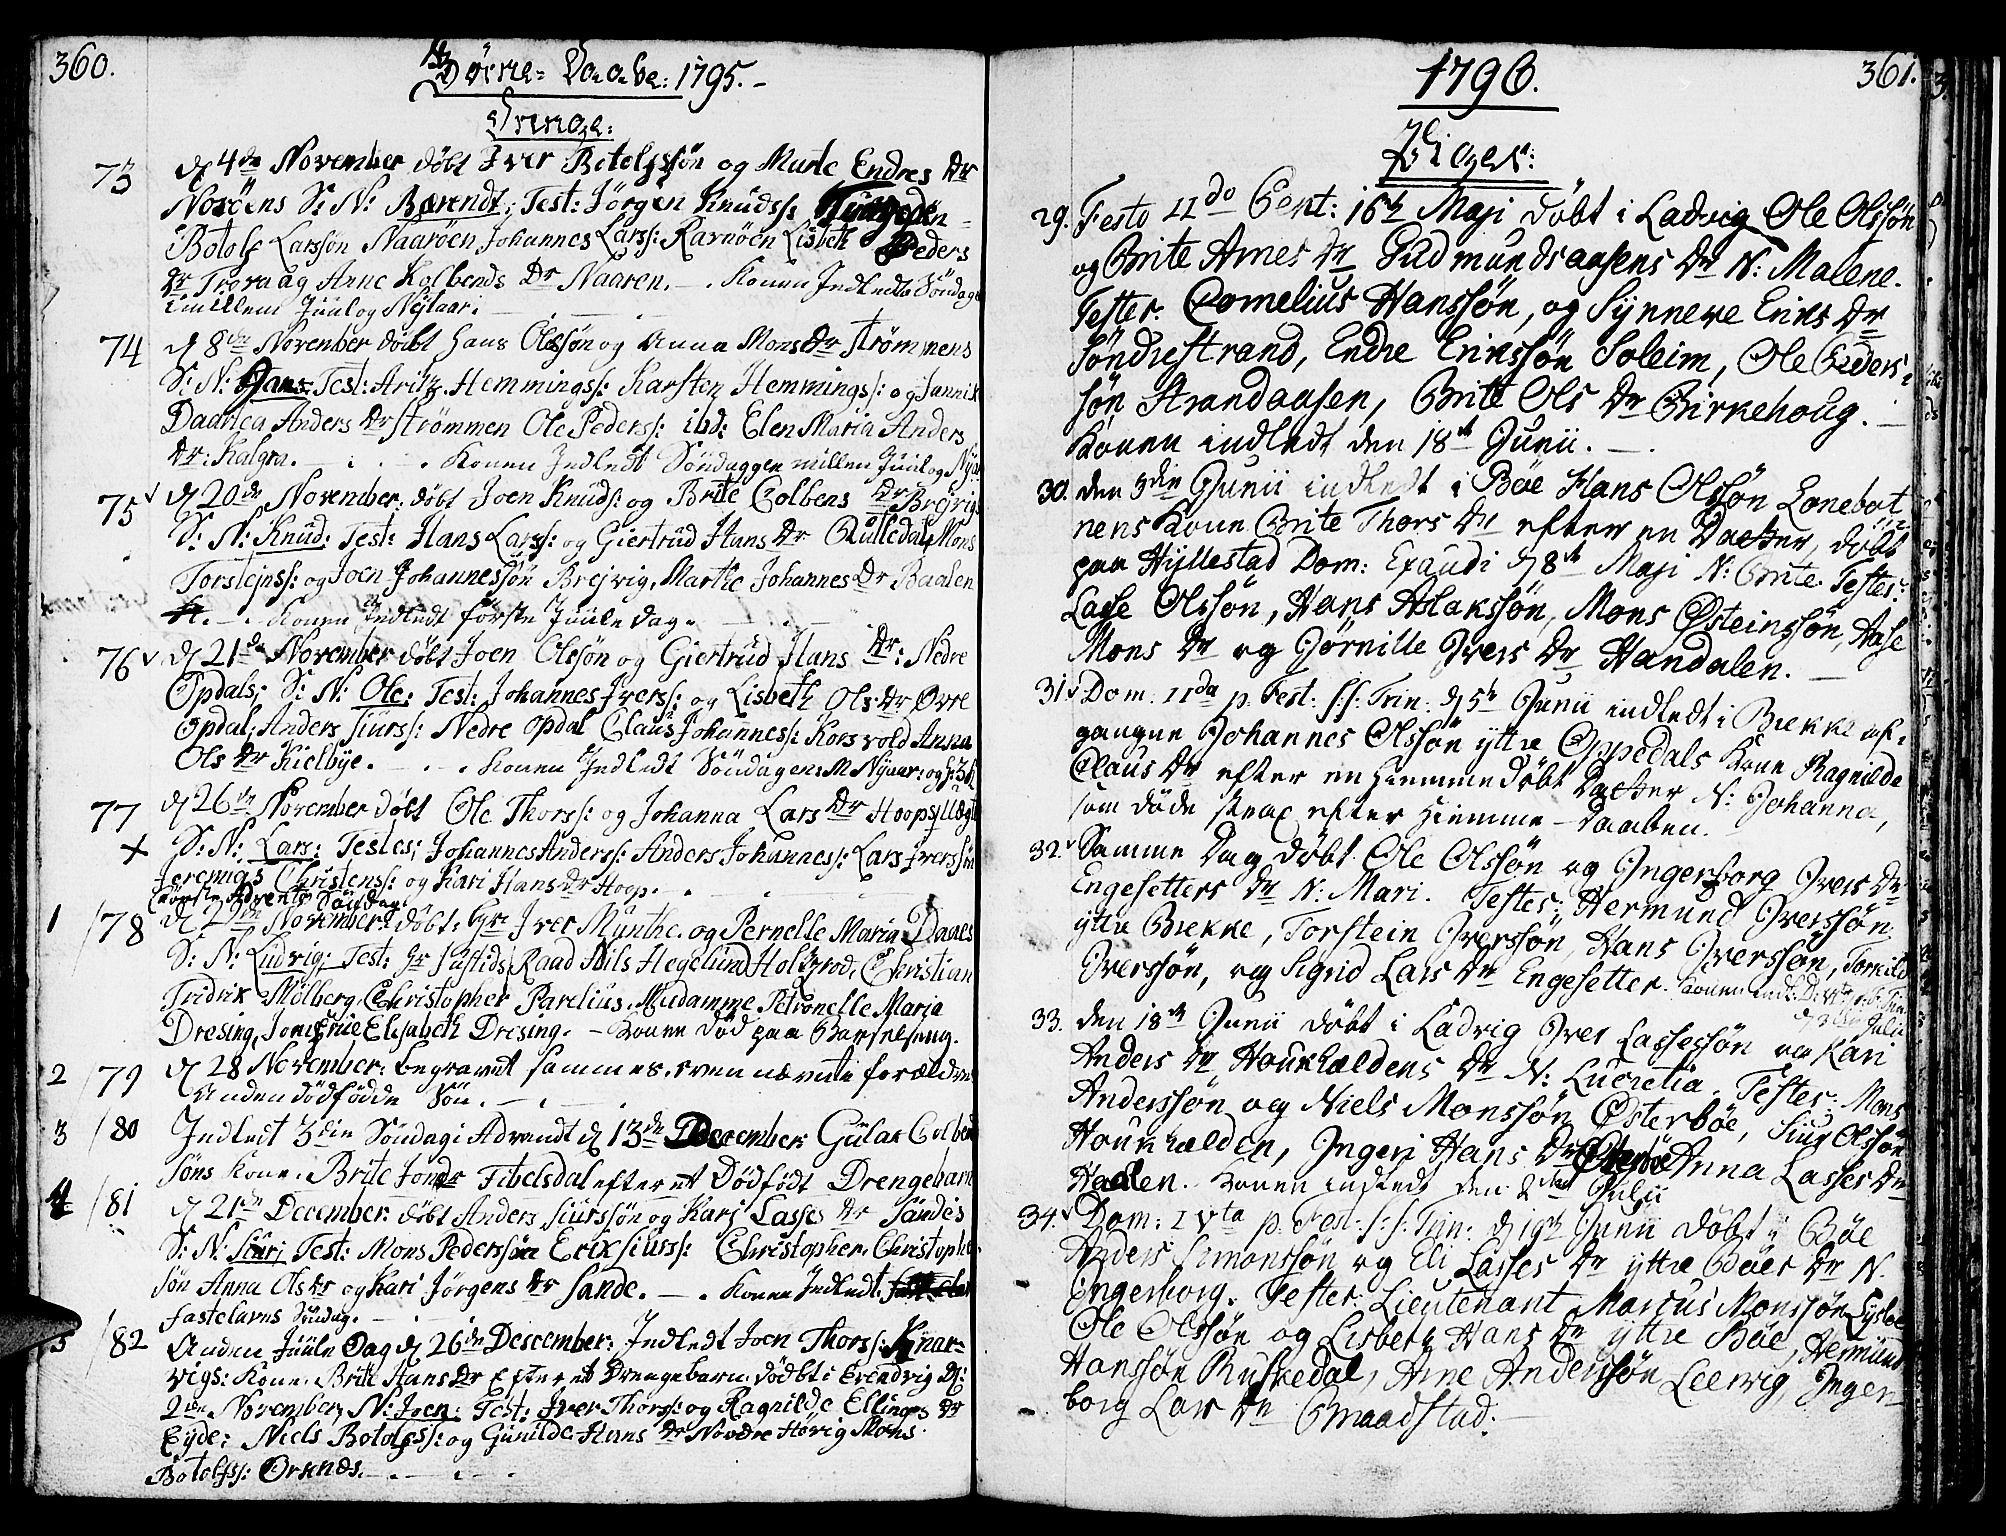 360.
Börne-Daabe: 1795.-
Drenge:
73 d 4de November döbt Iver Botolfssøn og Marte Endres Dr
Noröens S: N: Barendt; Test: Jörgen Knuds:
Botolf Larssön Naaröen Johannes Lars: Ravnöen Lisbeth Peders
Dr Trovaag Anne Kolbends Dr Naaren. - . Konen Indledt Söndagen
imillem Juul og Nytaar: -
74 d 8de November döbt Hans Olssøn og Anna Mons Dr Strömmens
S: N: Hans: Test: Hemmings: Karsten Hemmings: og Jannik
Daanica Anders Dr Strömmen Ole Peders: ibd: Elen Maria Anders
Dr: Kalgra. - . - . Konen Indledt Söndaggen millem Juul og Nyaar
75 √ d 20de November: döbt Joen Knuds: og Brite Colbens Dr Brejvigs
S: N: Knud: Test: Hans Lars: og Giertrud Hans Dr Mons
Torstejns: og Joen Johannessøn Brejvig, Marthe Johannes Dr Baalen
. - . Konen Indledt förste Juule dag.
76 √ d 21de November döbt Joen Olssøn og Giertrud Hans Dr: Nedre
Opdals: S: N: Ole: Test: Johannes Ivers: og Lisbeth Ols Dr Øvre
Opdal; Anders Siurs: Nedre Opdal Claus Johannes: Korsvold Anna
Ols Dr Kielbye. - . - . Konen Indledt Söndagen: M Nyaar: og H: 3 K
77 d 26de November döbt Ole Thors: og Johanna Lars Dr Hoops
+ S: N: Lars: Testes; Johannes Anders: Anders Johannes: Lars Iverssön
Jeremias Christens: og Kari Hans Dr Hoop. -
Förste Advents Söndag.
1 /78 d November: döbt: Hr Iver Munthe. og Pernelle Maria Danes
S: N: Ludvig; Test: Hr Justids Raad Nils Hegelund Christian
Fridrik Mölberg. Christopher Parelius. Madamme Petronelle Maria
Dresing, Jomfrue Elisabeth Dresing. - Konen död paa Barselseng.
2 /79 d 28 November: begravet sammes oven nævnte forældres
Anden dödfödde Sön. -
3 /80 Indledt 3die Söndag i Advendt d 13de December: Gulak Colbend
söns Kone. Brite Jons Dr Tibelsdal efter et Dödfödt Drengebarn
4 /81 d 21de December: döbt Anders Siurssøn og Kari Lasses Dr Sandes
S: N: Siur; Test: Mons Pederssön Erik Siurs: Christopher Christopher
sön Anna Ols Dr og Kari Jörgens Dr Sande. - . Konen Indledt:
Fastelavns Söndag. -
5 /82 Anden Juule Dag d 26de Descember: Indledt Joen Thors: Knar-
vigs: Kone. Brite Hans Dr Efter et Drengebarn: dödbt i Evendvig D:
2den November; N: Joen: Test: Iver Thors: og Ragnilde Ellings Dr
Eyde: Niels Botolfs: og Gunilde Hans Dr Nordre Hövig Mons
Botolfs: Ornnes. -
361.
1796.
Piger:
29. Festo IIdo Pent: 16de Maji döbt i Ladvig Ole Olssøn
og Brite Arnes Dr Gudmundsaasens Dr N: Malene.
Testes: Cornelius Hanssøn, og Synneve Eriks Dr
Söndrestrand, Endre Erikssøn Soleim, Ole Peders-
søn Strandaasen, Brite Ols Dr Birkehoug. -
Konen indledt den 18de Junii. -
30. den 3die Junii indledt i Böe Hans Olssøn Lonebot
nens Kone Brite Thors Dr efter en Datter, döbt
paa Hyllestad Dom: Exaudi d 8de Maji N: Brite. Testes:
Lasse Olssøn, Hans Aslakssøn, Mons Østeinssøn, Aase
Mons Dr og Gjørnille Ivers Dr Handalen. -
31 √ Dom. IIda p. Fest: S:S: Trin: d 5te Junii indledt i Brekke af-
gangne Johannes Olssøn yttre Oppedals Kone Ragnilde
Claus Dr efter en hiemmedöbt Datter N: Johanna,
som döde strax efter Hiemme-Daaben.
32. √ Samme Dag döbt Ole Olssøn og Ingerborg Ivers Dr
Engesetters Dr N: Mari. Testes: Hermund Iverssøn
yttre Brekke, Torstein Iverssøn, Hans Iverssøn, Torkild
Iverssøn, og Sigrid Lars Dr Engesetter. Konen indl: D: p. Trin:
d 3die Julii
33. den 18de Junii döbt i Ladvig Iver Lassessøn og Kari
Anders Dr Haukhældens Dr N: Lucretia. Testes: Mons
Anderssøn og Niels Monssøn Østerböe, Siur Olssøn
Haukhælden, Ingeri Hans Dr Anna Lasses Dr
Haalen. Konen indledt den 2den Julii
34. √ Dom: IVta p. Fest: S:S: Trin: d 19de Junii döbt i Böe
Anders Simonssøn og Eli Lasses Dr yttre Böes Dr N.
Ingerborg. Testes: Lieutenant Marcus Monssøn Lysbo
Ole Olssøn og Lisbeth Hans Dr yttre Böe, Hermund
Hanssøn Ruskedal, Arne Anderssøn Leervig, Inger-
borg Lars Dr Braadstad.